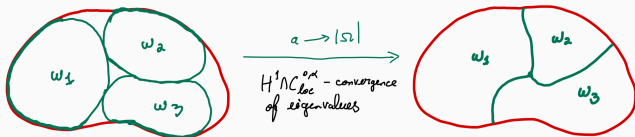 ω₁
ω₂
ω₃
a → |Ω|
H¹∩C^{0,α}_{loc} - convergence
of eigenvalues
ω₁
ω₂
ω₃